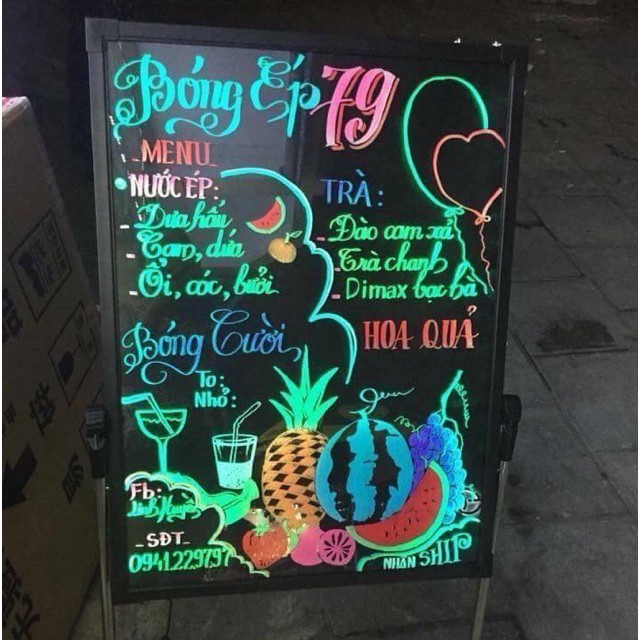 Bóng Ép 79
_MENU_
NƯỚC ÉP:
- Dưa hấu
- Cam, dứa
- Ổi, cóc, bưởi
TRÀ:
- Đào cam xả
- Trà chanh
- Dimax bạc hà
Bóng Cười
To:
Nhỏ:
HOA QUẢ
Fb:
Linh Huyền
_SĐT_
0941.229797
NHẬN SHIP